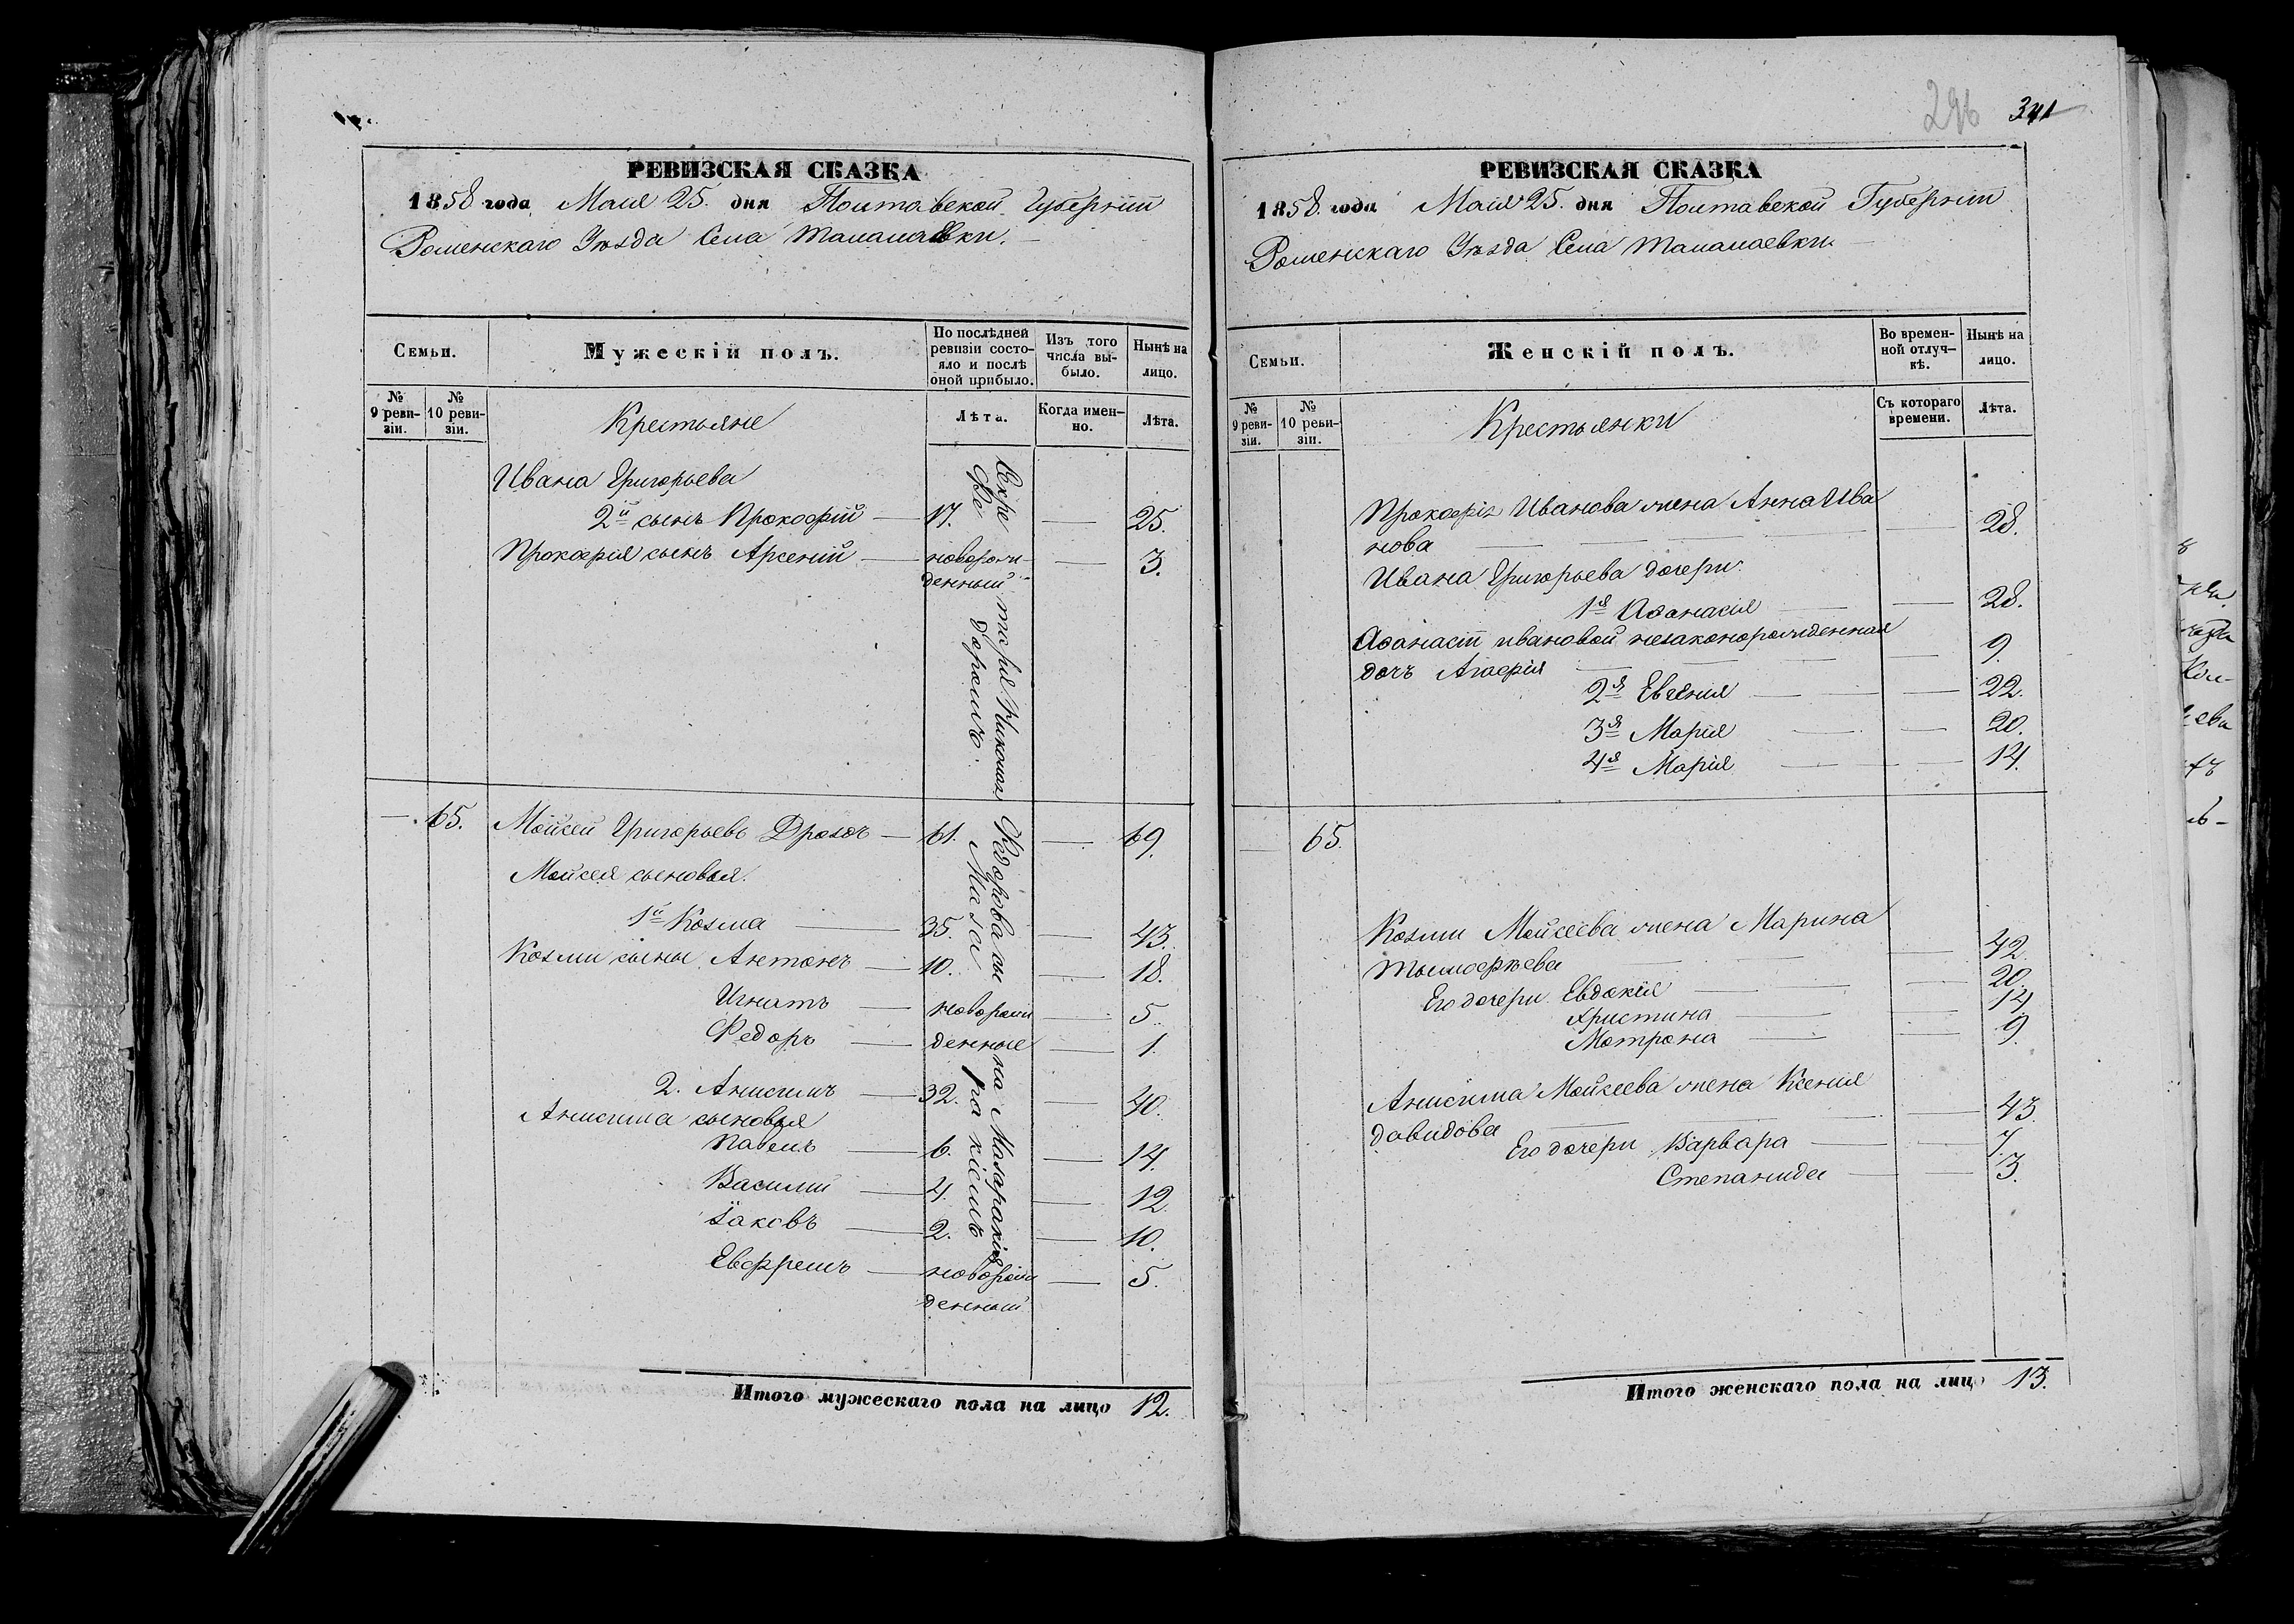 РЕВИЗСКАЯ СКАЗКА
1858 года Мая 25. дня Полтавской Губернии
Роменскаго Уѣзда Села Талалаевки.
Семьи.
Мужескій полъ.
По послѣдней ревизіи состояло и послѣ оной прибыло.
Изъ того числа выбыло.
Нынѣ на лицо.
№ 9 ревизіи.
№ 10 ревизіи.
Крестьяне
Лѣта.
Когда именно.
Лѣта.
Ивана Григорьева
2й сынъ Прокофій — 17. — 25.
Прокофія сынъ Арсеній — новорожденный — 3.
— 65. Мойсей Григорьевъ Дроздъ — 61. — 69.
Мойсея сыновья.
1й Козма — 35. — 43.
Козмы сыны Антонъ — 10. — 18.
Игнатъ — новорож — 5.
Федоръ — денные — 1.
2. Анисимъ — 32. — 40.
Анисима сыновья
Павелъ — 6. — 14.
Василій — 4. — 12.
Іаковъ — 2. — 10.
Евфремъ — новорожденный — 5.
Итого мужескаго пола на лицо 12.
341
РЕВИЗСКАЯ СКАЗКА
1858. года Мая 25. дня Полтавской Губерніи
Роменскаго Уѣзда Села Талалаевки.
Семьи.
Женскій полъ.
Во временной отлучкѣ.
Нынѣ на лицо.
№ 9 ревизіи.
№ 10 ревизіи.
Крестьянки
Съ котораго времени.
Лѣта.
Прокофія Иванова жена Анна Ива
нова — 28.
Ивана Григорьева дочери.
1я Афанасія — 28.
Афанасіи Ивановой незаконорожденная
дочь Агафія — 9.
2я Евгения — 22.
3я Марія — 20.
4я Марія — 14.
65.
Козмы Мойсеева жена Марина
Тымофѣева — 42.
Его дочери Евдокія — 20.
Христина — 14.
Мотрона — 9.
Анисима Мойсеева жена Ксенія
Давидова — 43.
Его дочери Варвара — 7.
Степанида — 3.
Итого женскаго пола на лицо 13.